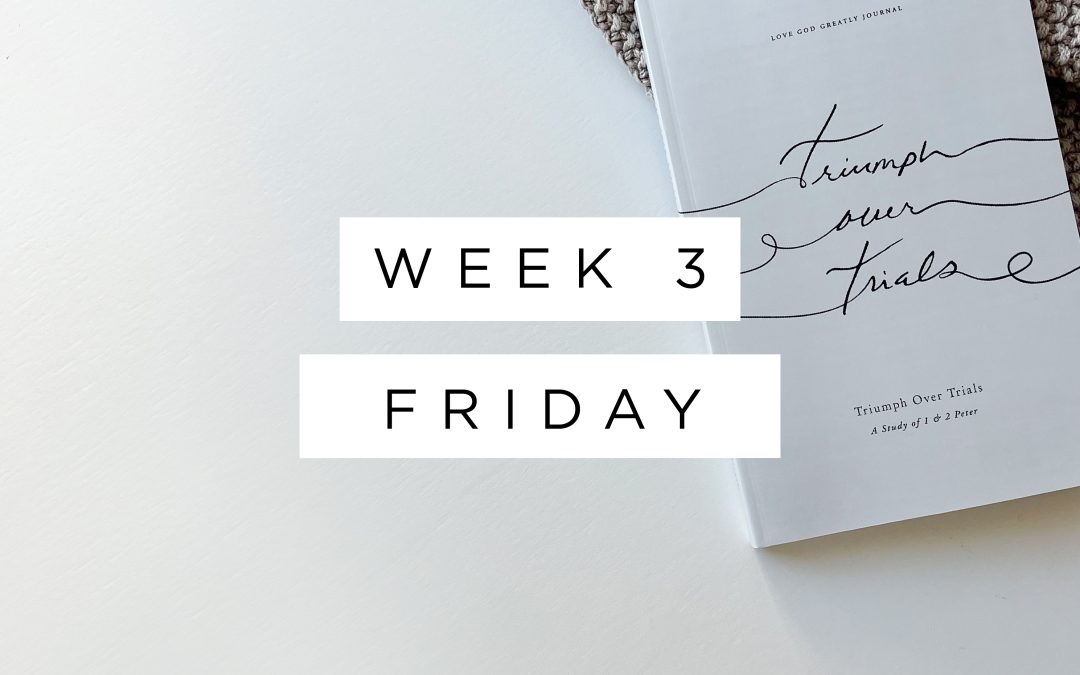 LOVE GOD GREATLY JOURNAL
Triumph
over
Trials
WEEK 3
FRIDAY
Triumph Over Trials
A Study of 1 & 2 Peter